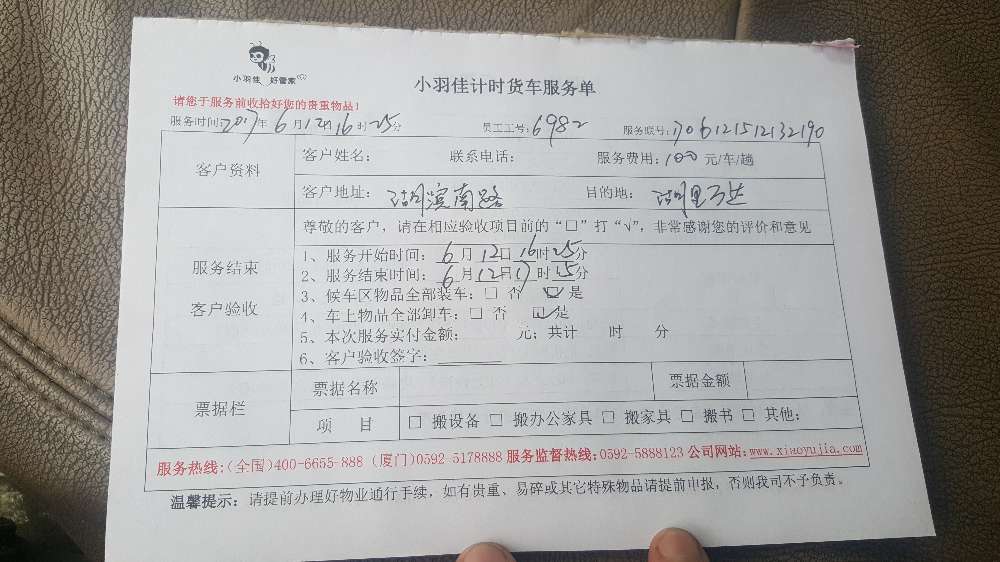 小羽佳 好管家
小羽佳计时货车服务单
请您于服务前收拾好您的贵重物品！
服务时间：2017年 6月12日16时25分 员工工号：6982 服务联号：1706121512132190
客户资料
客户姓名： 联系电话： 服务费用：100 元/车/趟
客户地址： 湖滨南路 目的地： 湖里万达
服务结束
客户验收
尊敬的客户，请在相应验收项目前的“□”打“√”，非常感谢您的评价和意见
1、服务开始时间： 6月12日16时25分
2、服务结束时间： 6月12日17时15分
3、候车区物品全部装车：□ 否 ☑ 是
4、车上物品全部卸车：□ 否 ☑ 是
5、本次服务实付金额： 元；共计 时 分
6、客户验收签字：
票据栏
票据名称 票据金额
项 目 □ 搬设备 □ 搬办公家具 □ 搬家具 □ 搬书 □ 其他：
服务热线：(全国)400-6655-888 (厦门)0592-5178888 服务监督热线：0592-5888123 公司网站：www.xiaoyujia.com
温馨提示：请提前办理好物业通行手续，如有贵重、易碎或其它特殊物品请提前申报，否则我司不予负责。